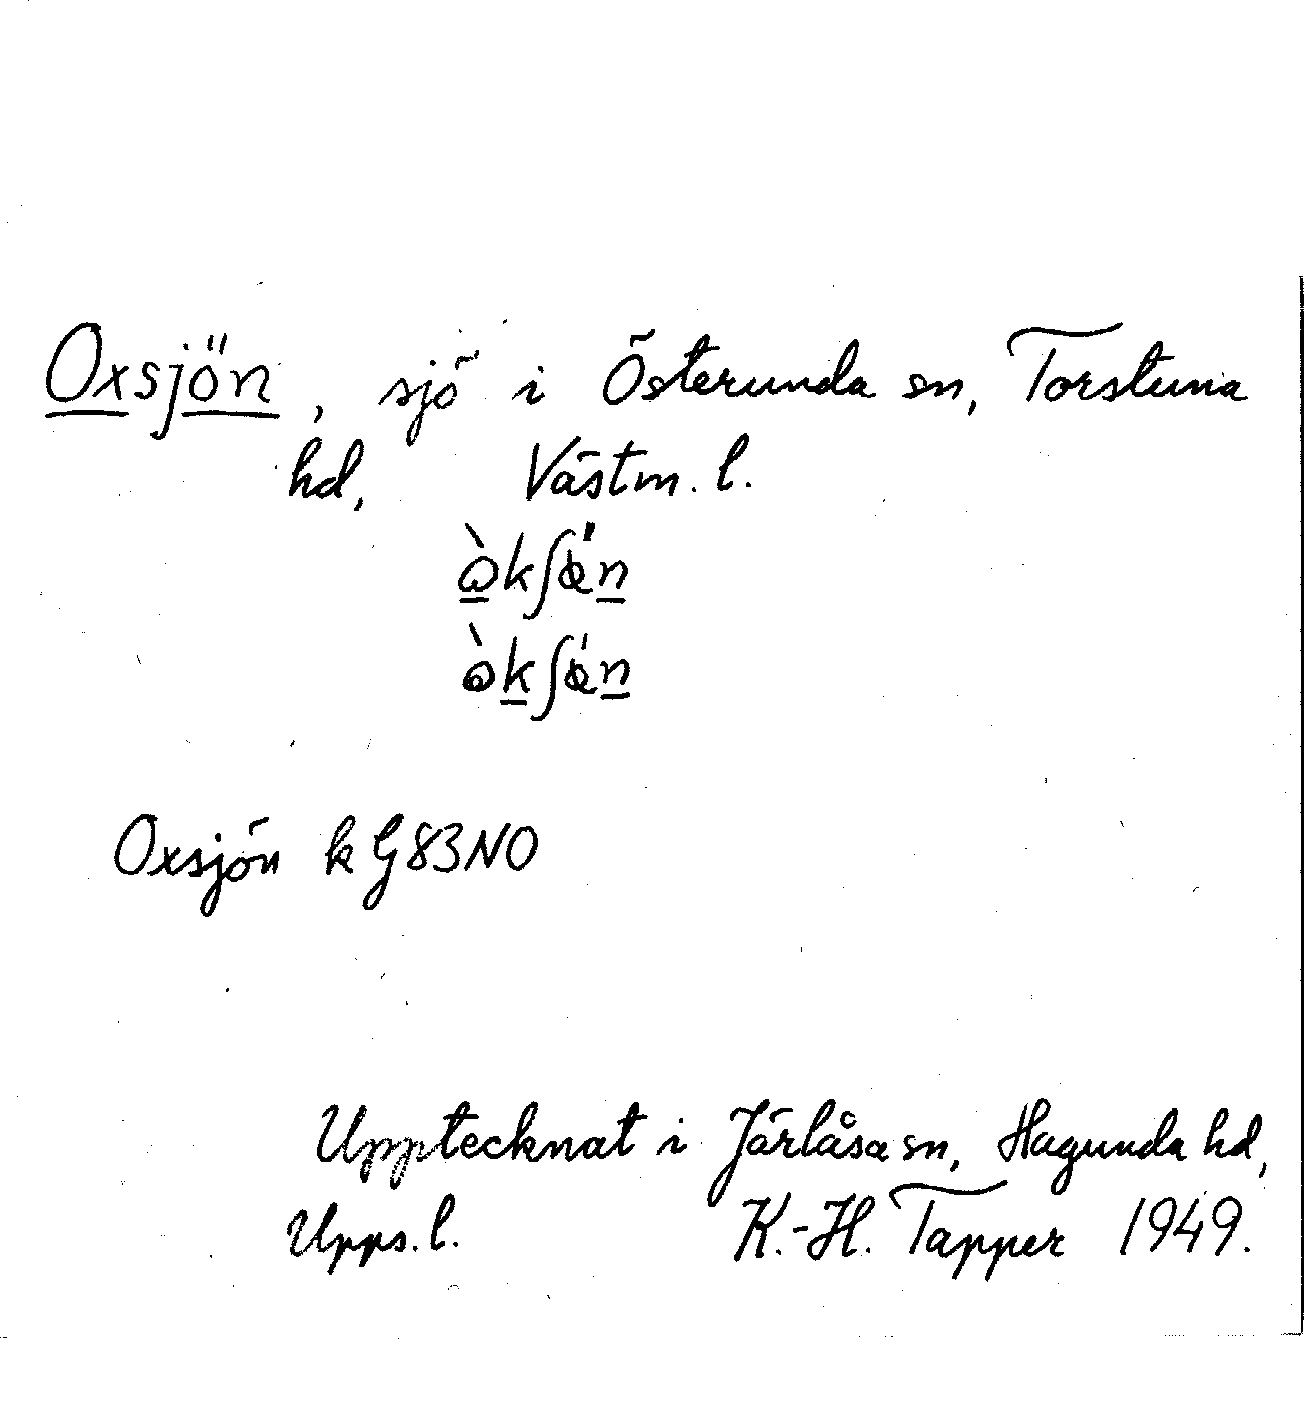 Oxsjön, sjö i Österunda sn, Torstuna
hd, Västm. l.
Oxsjön k G83NO
Upptecknat i Järlåsa sn, Hagunda hd,
Upps. l. K.-H. Tapper 1949.